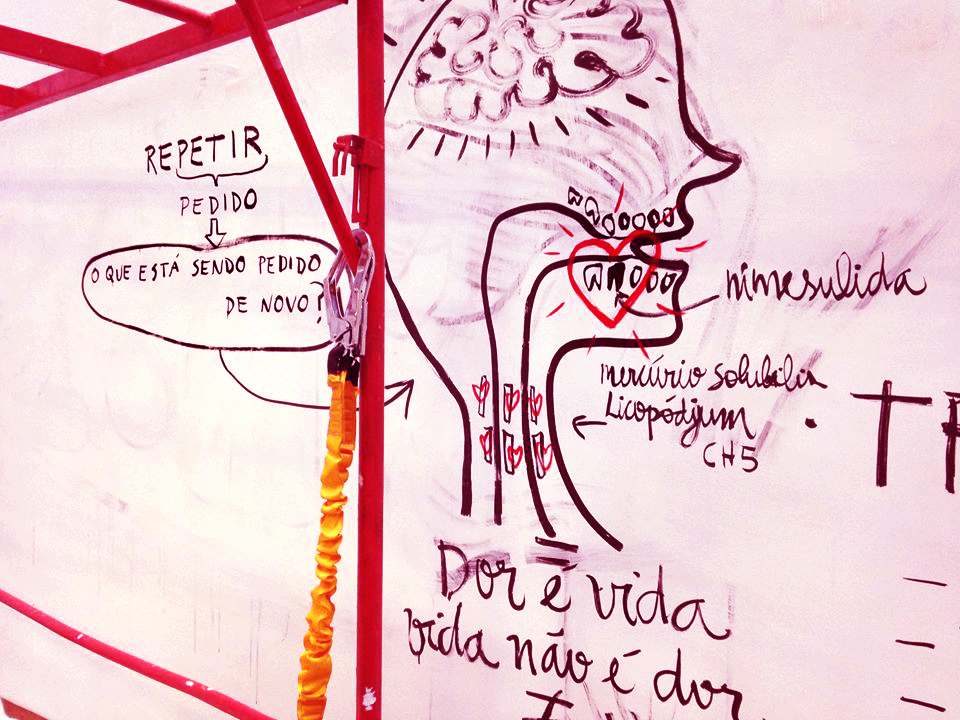 REPETIR
PEDIDO
O QUE ESTÁ SENDO PEDIDO
DE NOVO?
nimesulida
mercúrio solubilis
Licopódjum
CH5
Dor é vida
vida não é dor